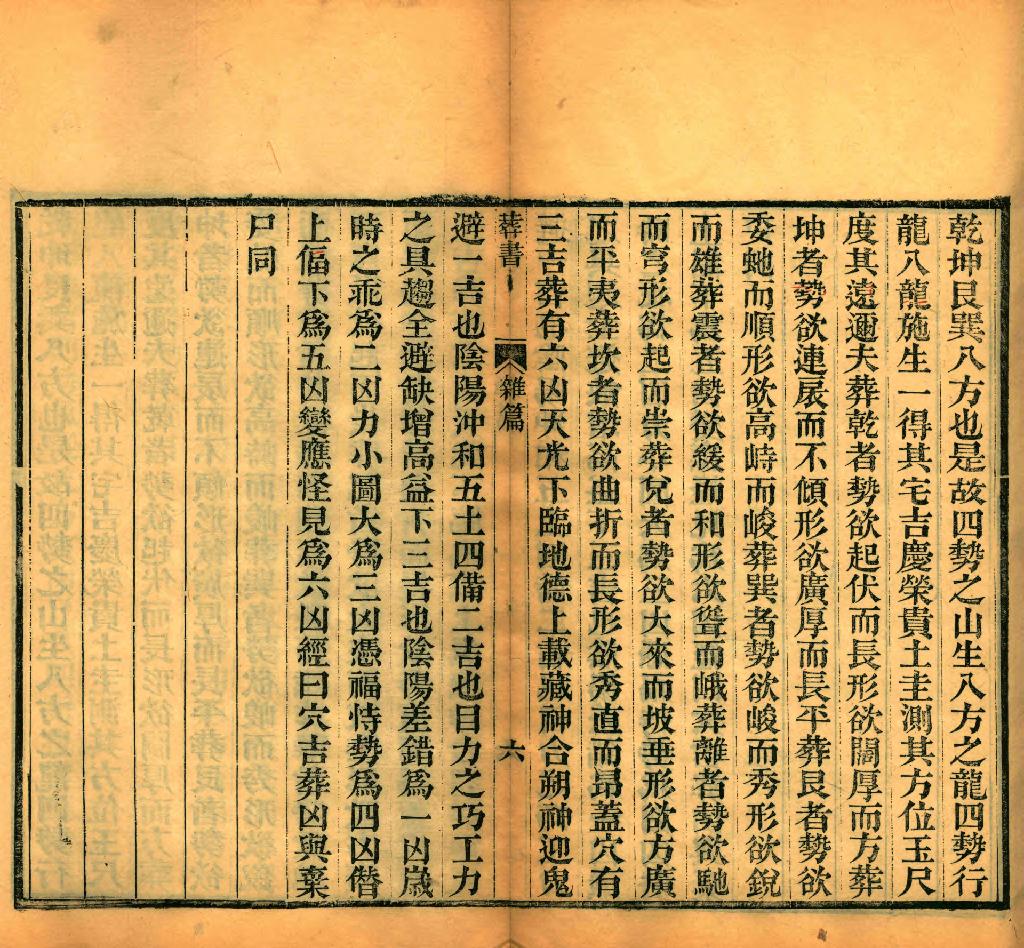 乾坤艮巽八方也是故四勢之山生八方之龍四勢行
龍八龍施生一得其宅吉慶榮貴土圭測其方位玉尺
度其遠邇夫葬乾者勢欲起伏而長形欲闊厚而方葬
坤者勢欲連屈而不傾形欲廣厚而長平葬艮者勢欲
委虵而順形欲高峙而峻葬巽者勢欲峻而秀形欲銳
而雄葬震者勢欲緩而和形欲聳而峨葬離者勢欲馳
而穹形欲起而崇葬兌者勢欲大來而坡垂形欲方廣
而平夷葬坎者勢欲曲折而長形欲秀直而昻蓋穴有
三吉葬有六凶天光下臨地德上載藏神合朔神迎鬼
葬書
雜篇
六
避一吉也陰陽沖和五土四備二吉也目力之巧工力
之具趨全避缺增高益下三吉也陰陽差錯爲一凶歲
時之乖爲二凶力小圖大爲三凶憑福恃勢爲四凶僭
上偪下爲五凶變應怪見爲六凶經曰穴吉葬凶與棄
尸同